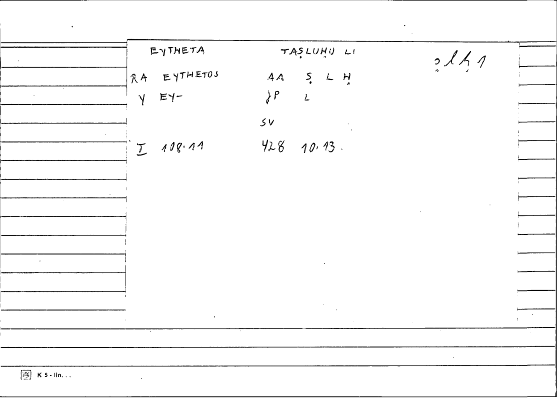 EYTHETA TAṢLUḤU LI ṣlḥ 1
RA EYTHETOS AA Ṣ L Ḥ
Y EY- JP L
SV
I 108.11 428 10.13.
K 5 - lin...